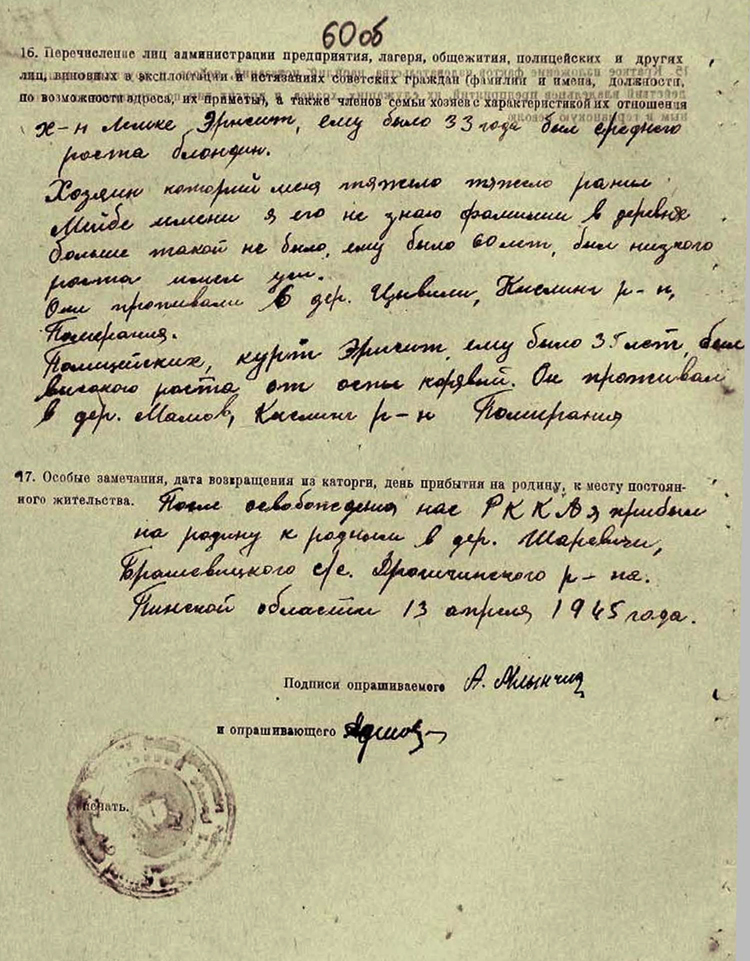 60об
16. Перечисление лиц администрации предприятия, лагеря, общежития, полицейских и других
лиц, виновных в эксплоатации и истязаниях советских граждан (фамилии и имена, должности,
по возможности адреса, их приметы), а также членов семьи хозяев с характеристикой их отношения
х-н Лемке Эрисит, ему было 33 года был среднего
роста блондин.
Хозяин которий меня тяжело тяжело ранил
Мейбе имени я его не знаю фамилии в деревне
больше такой не было, ему было 60 лет, был низкого
роста имел ус.
Они проживали в дер. Цывили, Кислинг р-н,
Померания.
Полицейских, курт Эрисит, ему было 35 лет, был
високого роста от оспы корявий. Он проживал
в дер. Мамов, Кислинг р-н Помирания
17. Особые замечания, дата возвращения из каторги, день прибытия на родину, к месту постоян-
ного жительства. После освобождения нас РККА я прибыл
на родину к родным в дер. Шаревичи,
Брашевицкого с/с. Дрогичинского р-на.
Пинской области 13 апреля 1945 года.
Подписи опрашиваемого А. Млынчиц
и опрашивающего
печать.